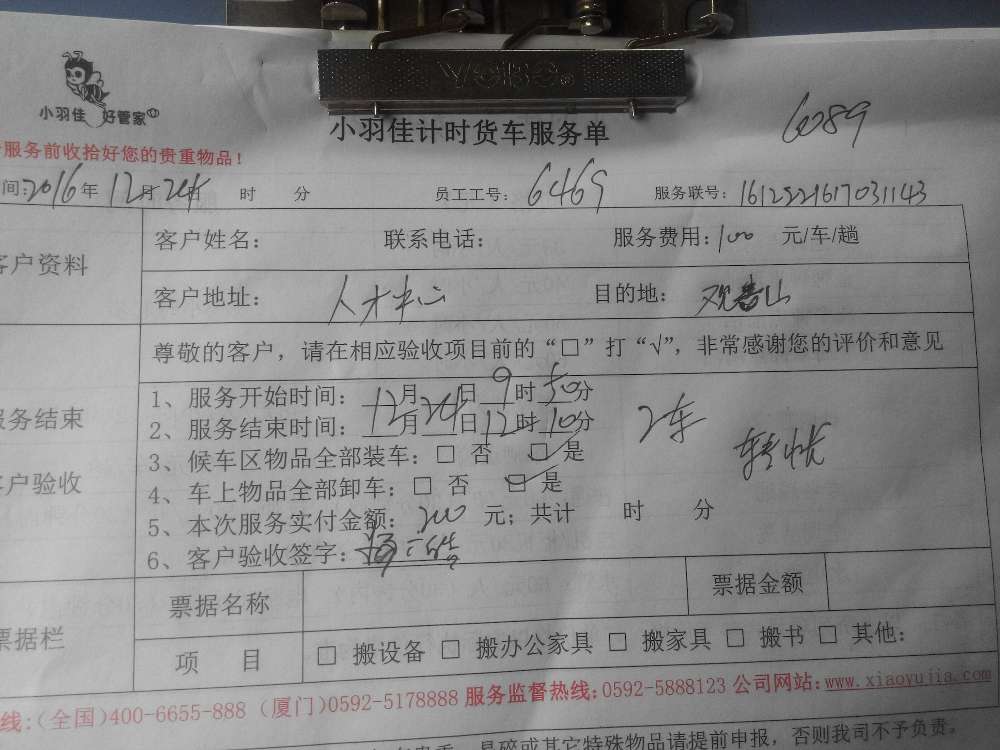 小羽佳 好管家
小羽佳计时货车服务单
6089
服务前收拾好您的贵重物品！
间:2016年12月24日 时 分 员工工号:6469 服务联号:1612221617031143
客户资料
客户姓名: 联系电话: 服务费用:100 元/车/趟
客户地址: 人才中心 目的地: 观音山
尊敬的客户，请在相应验收项目前的“□”打“√”，非常感谢您的评价和意见
服务结束
客户验收
1、服务开始时间：12月24日9时50分
2、服务结束时间：12月24日12时10分
2车
3、候车区物品全部装车：□ 否 □ 是
4、车上物品全部卸车：□ 否 □ 是
5、本次服务实付金额：200 元；共计 时 分
6、客户验收签字：
票据栏
票据名称 票据金额
项 目 □ 搬设备 □ 搬办公家具 □ 搬家具 □ 搬书 □ 其他:
线:(全国)400-6655-888 (厦门)0592-5178888 服务监督热线:0592-5888123 公司网站:www.xiaoyujia.com
易碎或其它特殊物品请提前申报，否则我司不予负责。